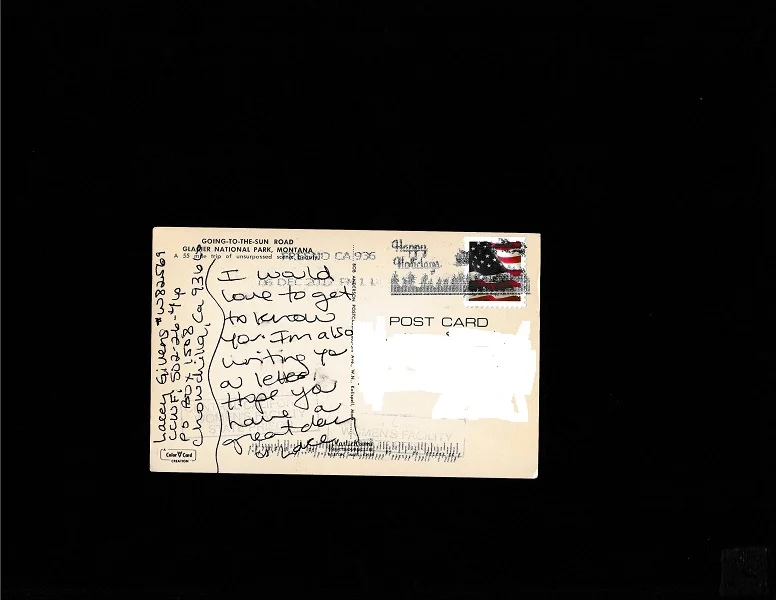 GOING-TO-THE-SUN ROAD
GLACIER NATIONAL PARK, MONTANA
A 55 mile trip of unsurpassed scenic beauty.
Lacey Givens #W82569
CCWF, 502-26-4up
PO BOX 1508
Chowchilla, Ca 93610
I would
love to get
to know
you. I'm also
writing you
a letter!
Hope you
have a
great day
Lacey
CA 936
06 DEC 2017 PM 1 L
Happy
Holidays
POST CARD
WOMEN'S FACILITY
MasterKrome
Color Card
CREATION